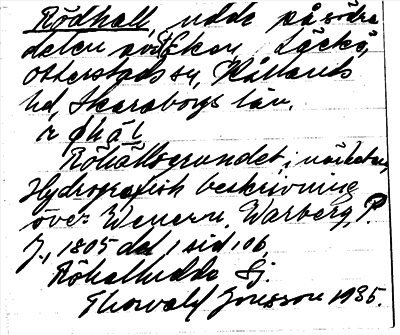 Rödhall, udde på södra
delen av Ekens, Läckö,
Otterstads sn, Kållands
hd, Skaraborgs län.
Röhällsgrundet, i närheten,
Hydrografisk beskrivning
över Wenern, Warberg, P.
J., 1805 del 1 sid 106.
Röhalludde Sj.
Thorvald Jonsson 1935.